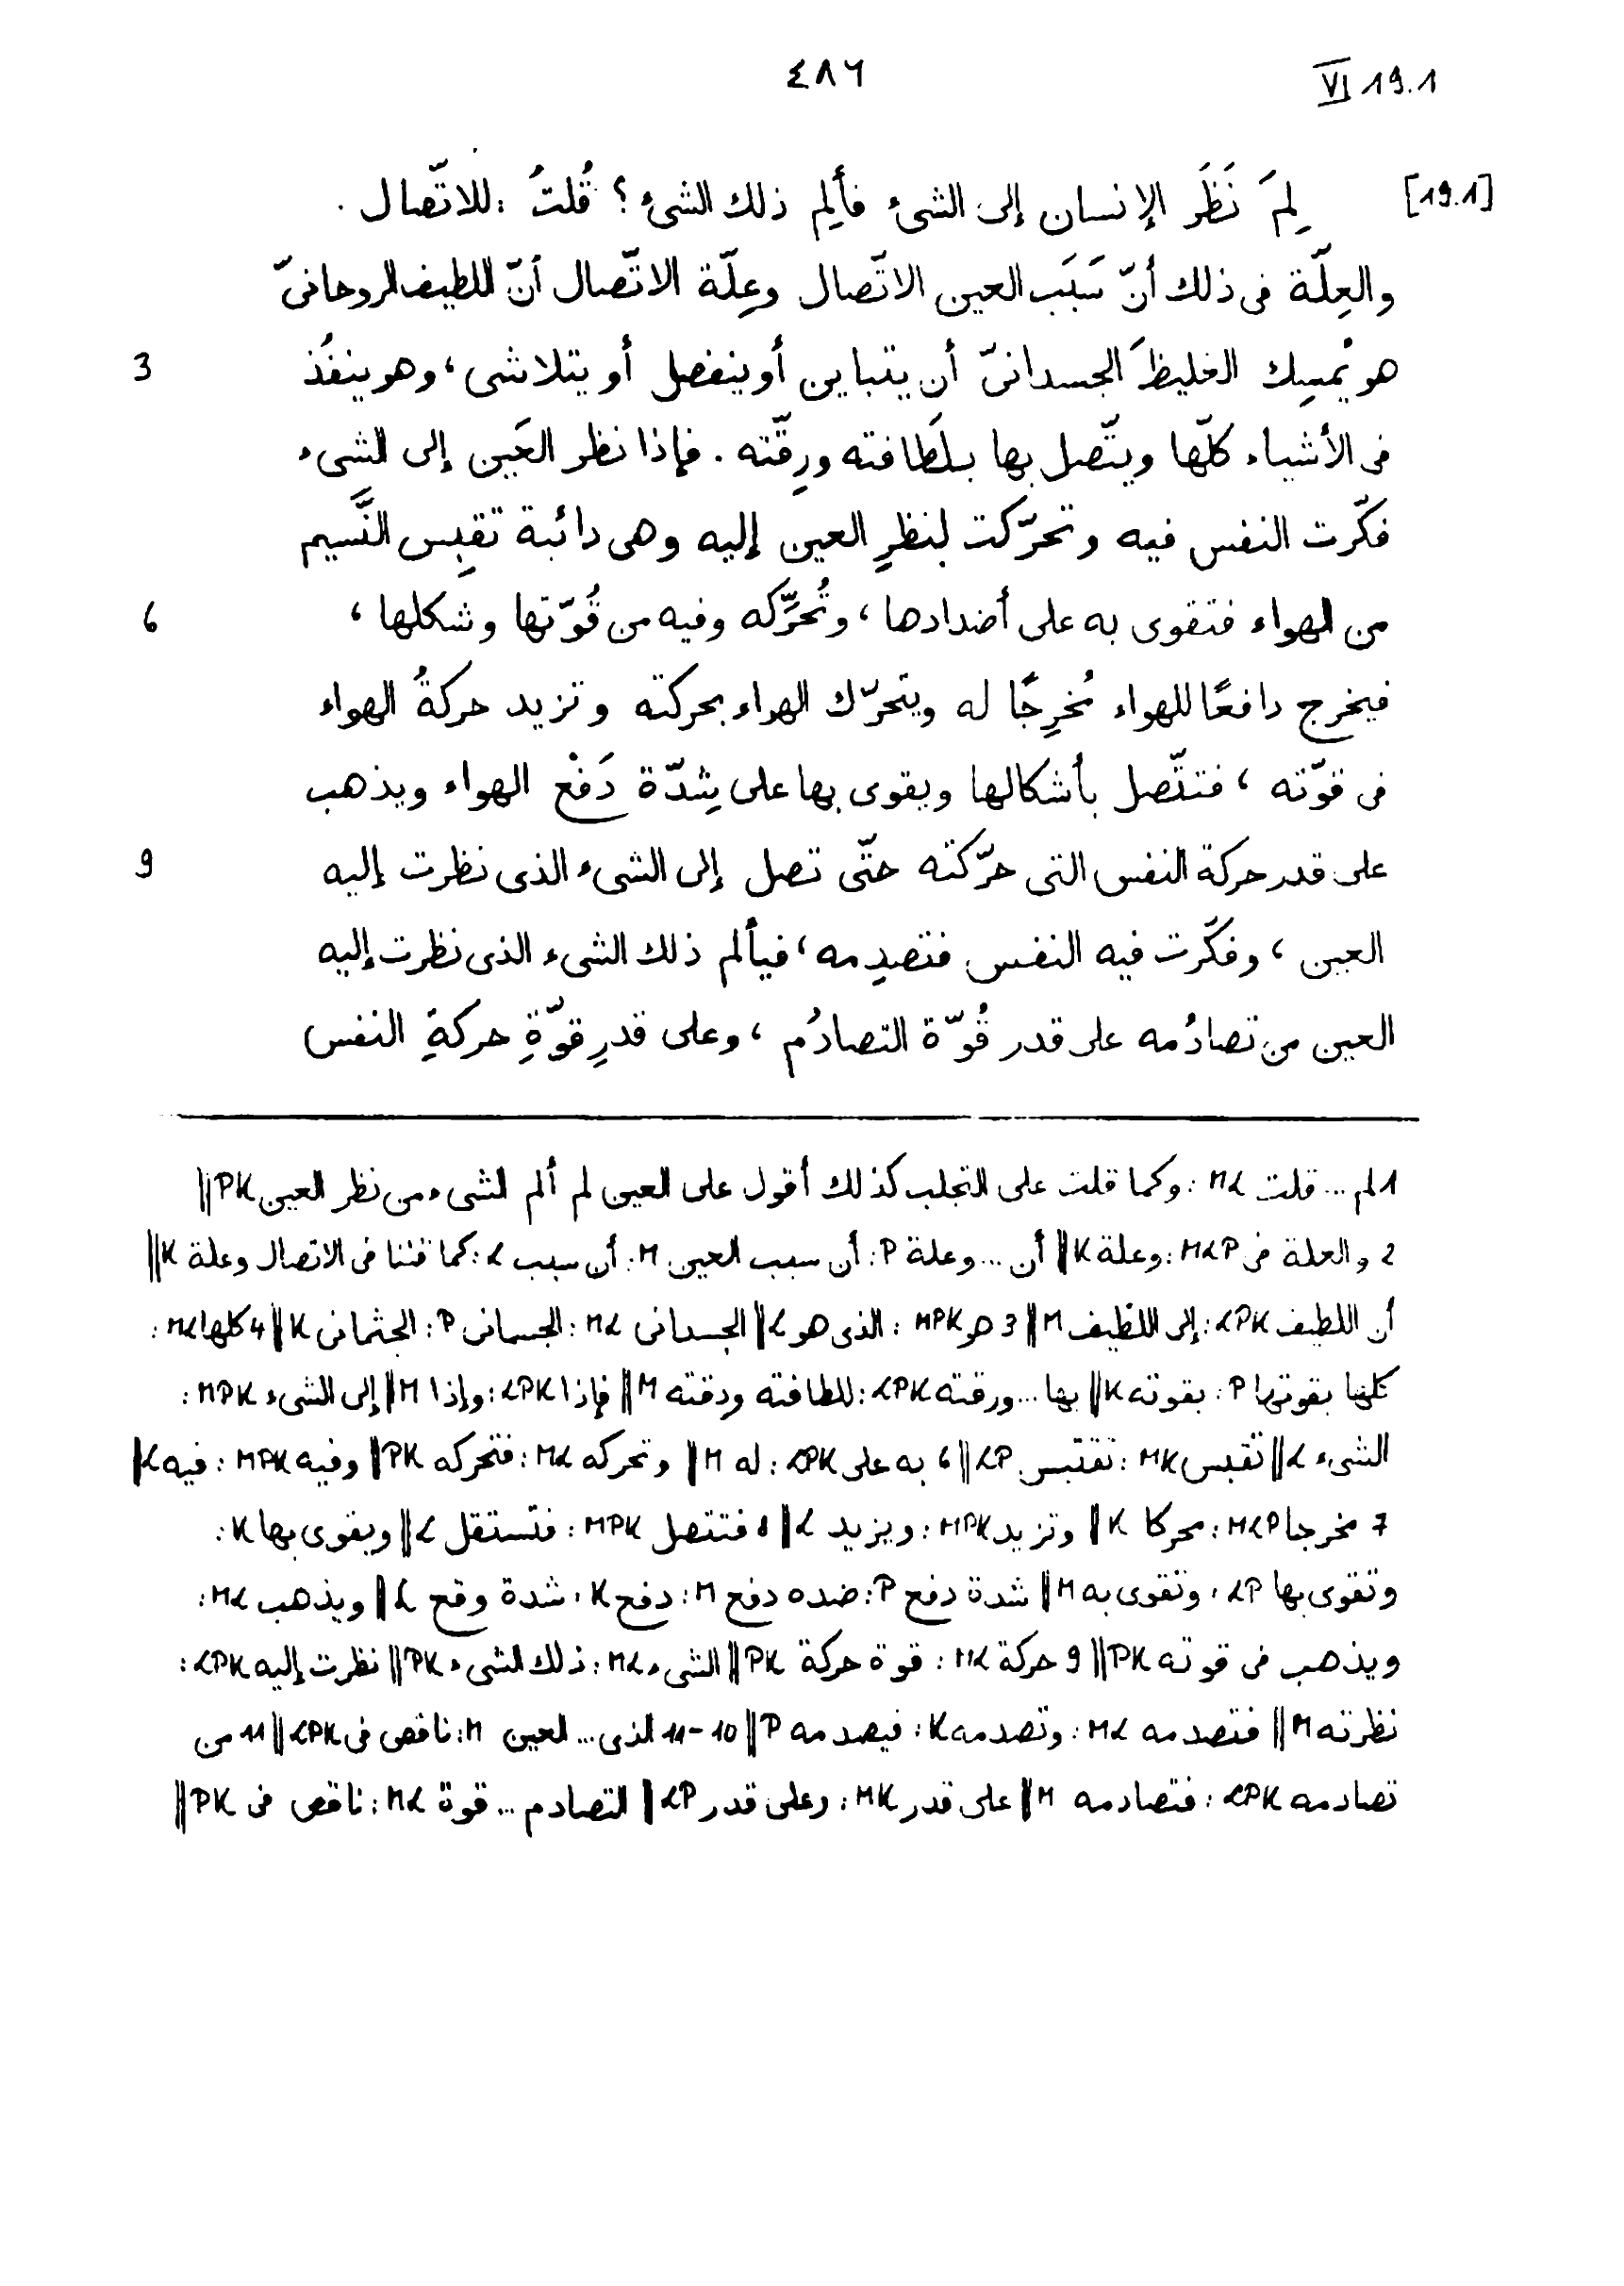 ٤٨٦
VI 19.1
[19.1] لِمَ نَظَرَ الإنسان إلى الشىء فألِم ذلك الشىء؟ قُلتُ: للاتّصال.
والعِلّة فى ذلك أنّ سَبَب العين الاتّصال وعِلّة الاتّصال أنّ اللطيف الروحانىّ
3 هو يُمسِك الغليظَ الجسدانىّ أن يتباين أو ينفصل أو يتلاشى، وهو ينفُذ
فى الأشياء كلّها ويتّصل بها بلَطافته ورِقّته. فإذا نظر العَين إلى الشىء
فكّرت النفس فيه وتحرّكت لِنظرِ العين إليه وهى دائبة تقبِس النَّسيم
6 من الهواء فتقوى به على أضدادها، وتُحرِّكه وفيه من قُوّتها وشكلها،
فيخرج دافعًا للهواء مُخرِجًا له ويتحرّك الهواء بحركته وتزيد حركةُ الهواء
فى قوّته، فتتّصل بأشكالها ويقوى بها على شِدّة دَفْع الهواء ويذهب
9 على قدر حركة النفس التى حرّكته حتّى تصل إلى الشىء الذى نظرت إليه
العين، وفكّرت فيه النفس فتصدِمه، فيألم ذلك الشىء الذى نظرت إليه
العين من تصادُمه على قدر قُوّة التصادُم، وعلى قدرِ قوّةِ حركةِ النفس
1 لم ... قلت ML: وكما قلت على التجلب كذلك أقول على العين لم ألم الشىء من نظر العين PK||
2 والعلة فى MLP: وعلة K|| أن ... وعلة P: أن سبب العين M: أن سبب L: كما قلنا فى الاتصال وعلة K||
أن اللطيف LPK: إلى اللطيف M|| 3 هو MPK: الذى هو L|| الجسدانى ML: الجسمانى P: الجثمانى K|| 4 كلها ML:
كلها بقوتها P: بقوته K|| بها ... ورقته LPK: للطافته ودقته M|| فإذا LPK: وإذا M|| إلى الشىء MPK:
الشىء L|| تقبس MK: تقتبس LP|| 6 به على LPK: له M|| وتحركه ML: فتحركه PK|| وفيه MPK: فيه L||
7 مخرجا MLP: محركا K|| وتزيد MPK: ويزيد L|| 8 فتتصل MPK: فتستقل L|| ويقوى بها K:
وتقوى بها LP: وتقوى به M|| شدة دفع P: ضده دفع M: دفع K: شدة وقع L|| ويذهب ML:
ويذهب فى قوته PK|| 9 حركة ML: قوة حركة PK|| الشىء ML: ذلك الشىء PK|| نظرت إليه LPK:
نظرته M|| فتصدمه ML: وتصدمه K: فيصدمه P|| 10-11 الذى ... العين M: ناقص فى LPK|| 11 من
تصادمه LPK: فتصادمه M|| على قدر MK: وعلى قدر LP|| التصادم ... قوة ML: ناقص فى PK||